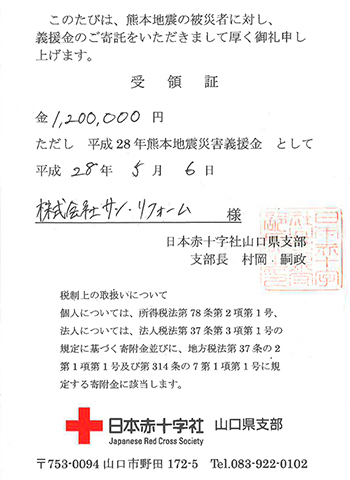 このたびは、熊本地震の被災者に対し、
義援金のご寄託をいただきまして厚く御礼申し
上げます。
受領証
金 1,200,000 円
ただし 平成28年熊本地震災害義援金 として
平成 28 年 5 月 6 日
株式会社サン・リフォーム 様
日本赤十字社山口県支部
支部長 村岡 嗣政
税制上の取扱いについて
個人については、所得税法第78条第2項第1号、
法人については、法人税法第37条第3項第1号の
規定に基づく寄附金並びに、地方税法第37条の2
第1項第1号及び第314条の7第1項第1号に規
定する寄附金に該当します。
日本赤十字社 山口県支部
Japanese Red Cross Society
〒753-0094 山口市野田 172-5 Tel.083-922-0102